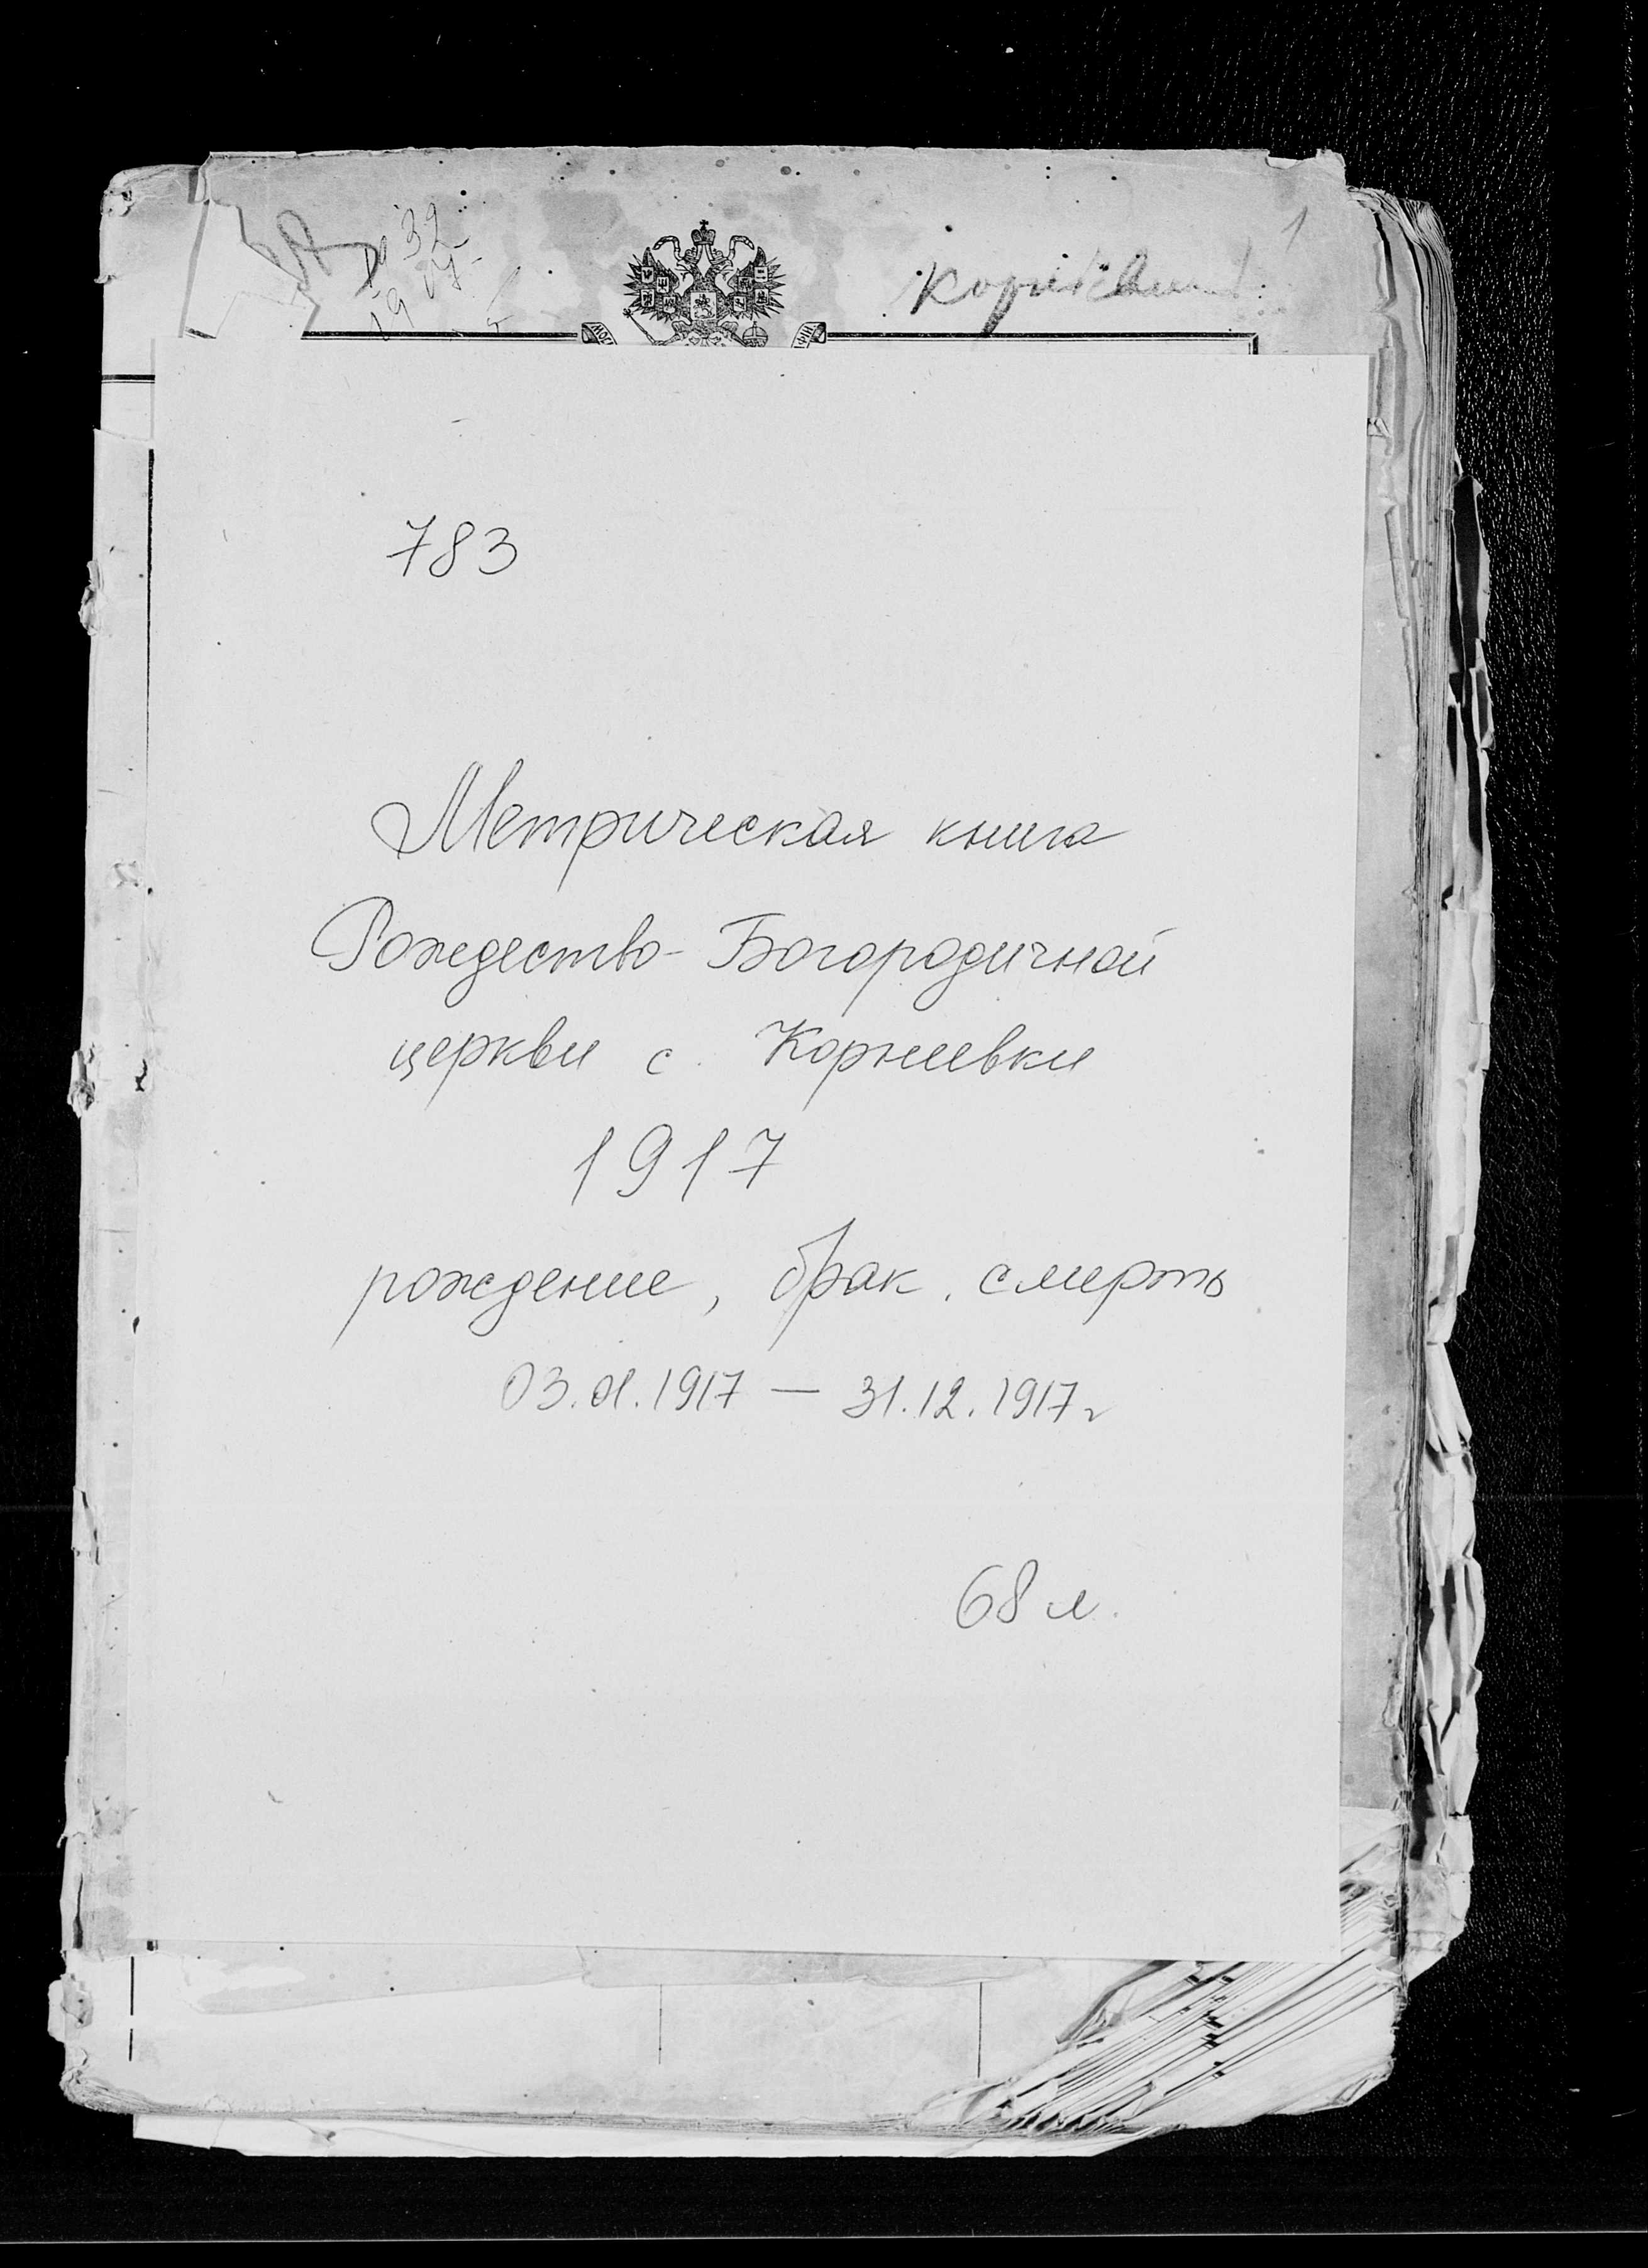 32
1
783
Метрическая книга
Рождество-Богородичной
церкви с. Корниевки
1917
рождение, брак, смерть
03.01.1917 — 31.12.1917 г
68 л.